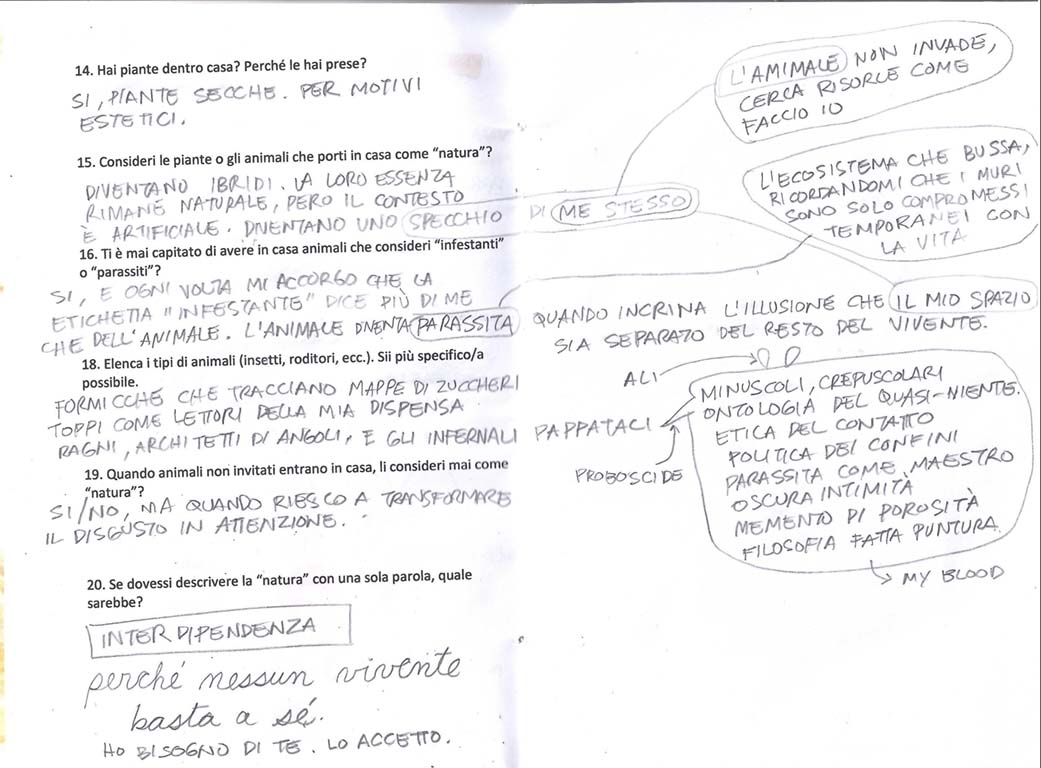 14. Hai piante dentro casa? Perché le hai prese?
SI, PIANTE SECCHE. PER MOTIVI
ESTETICI.
15. Consideri le piante o gli animali che porti in casa come “natura”?
DIVENTANO IBRIDI. LA LORO ESSENZA
RIMANE NATURALE, PERO IL CONTESTO
È ARTIFICIALE. DIVENTANO UNO SPECCHIO DI ME STESSO
L'AMIMALE NON INVADE,
CERCA RISORCE COME
FACCIO IO
16. Ti è mai capitato di avere in casa animali che consideri “infestanti”
o “parassiti”?
SI, E OGNI VOLTA MI ACCORGO CHE LA
ETICHETTA "INFESTANTE" DICE PIÙ DI ME
CHE DELL'ANIMALE. L'ANIMALE DIVENTA PARASSITA QUANDO INCRINA L'ILLUSIONE CHE IL MIO SPAZIO
SIA SEPARATO DEL RESTO DEL VIVENTE.
L'ECOSISTEMA CHE BUSSA,
RICORDANDOMI CHE I MURI
SONO SOLO COMPROMESSI
TEMPORANEI CON
LA VITA
18. Elenca i tipi di animali (insetti, roditori, ecc.). Sii più specifico/a
possibile.
FORMICCHE CHE TRACCIANO MAPPE DI ZUCCHERI
TOPPI COME LETTORI DELLA MIA DISPENSA
RAGNI, ARCHITETTI DI ANGOLI, E GLI INFERNALI PAPPATACI
ALI
PROBOSCIDE
MINUSCOLI, CREPUSCOLARI
ONTOLOGIA DEL QUASI-NIENTE.
ETICA DEL CONTATTO
POLITICA DEI CONFINI
PARASSITA COME MAESTRO
OSCURA INTIMITÀ
MEMENTO DI POROSITÀ
FILOSOFIA FATTA PUNTURA
MY BLOOD
19. Quando animali non invitati entrano in casa, li consideri mai come
“natura”?
SI/NO, MA QUANDO RIESCO A TRANSFORMARE
IL DISGUSTO IN ATTENZIONE.
20. Se dovessi descrivere la “natura” con una sola parola, quale
sarebbe?
INTERDIPENDENZA
perché nessun vivente
basta a sé.
HO BISOGNO DI TE. LO ACCETTO.